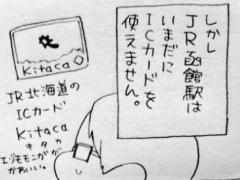 しかし
JR函館駅は
いまだに
ICカードを
使えません。
Kitaca
JR北海道の
ICカード
Kitaca
キタカ
エゾモモンガが
かわいい。